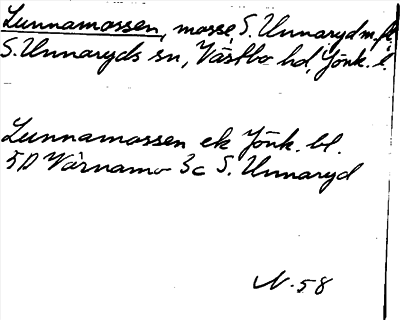 Lunnamossen, mosse, S. Unnaryd m. fl.
S. Unnaryds sn, Västbo hd, Jönk. l.
Lunnamossen ek Jönk. bl.
5D Värnamo 3c S. Unnaryd
N. 58